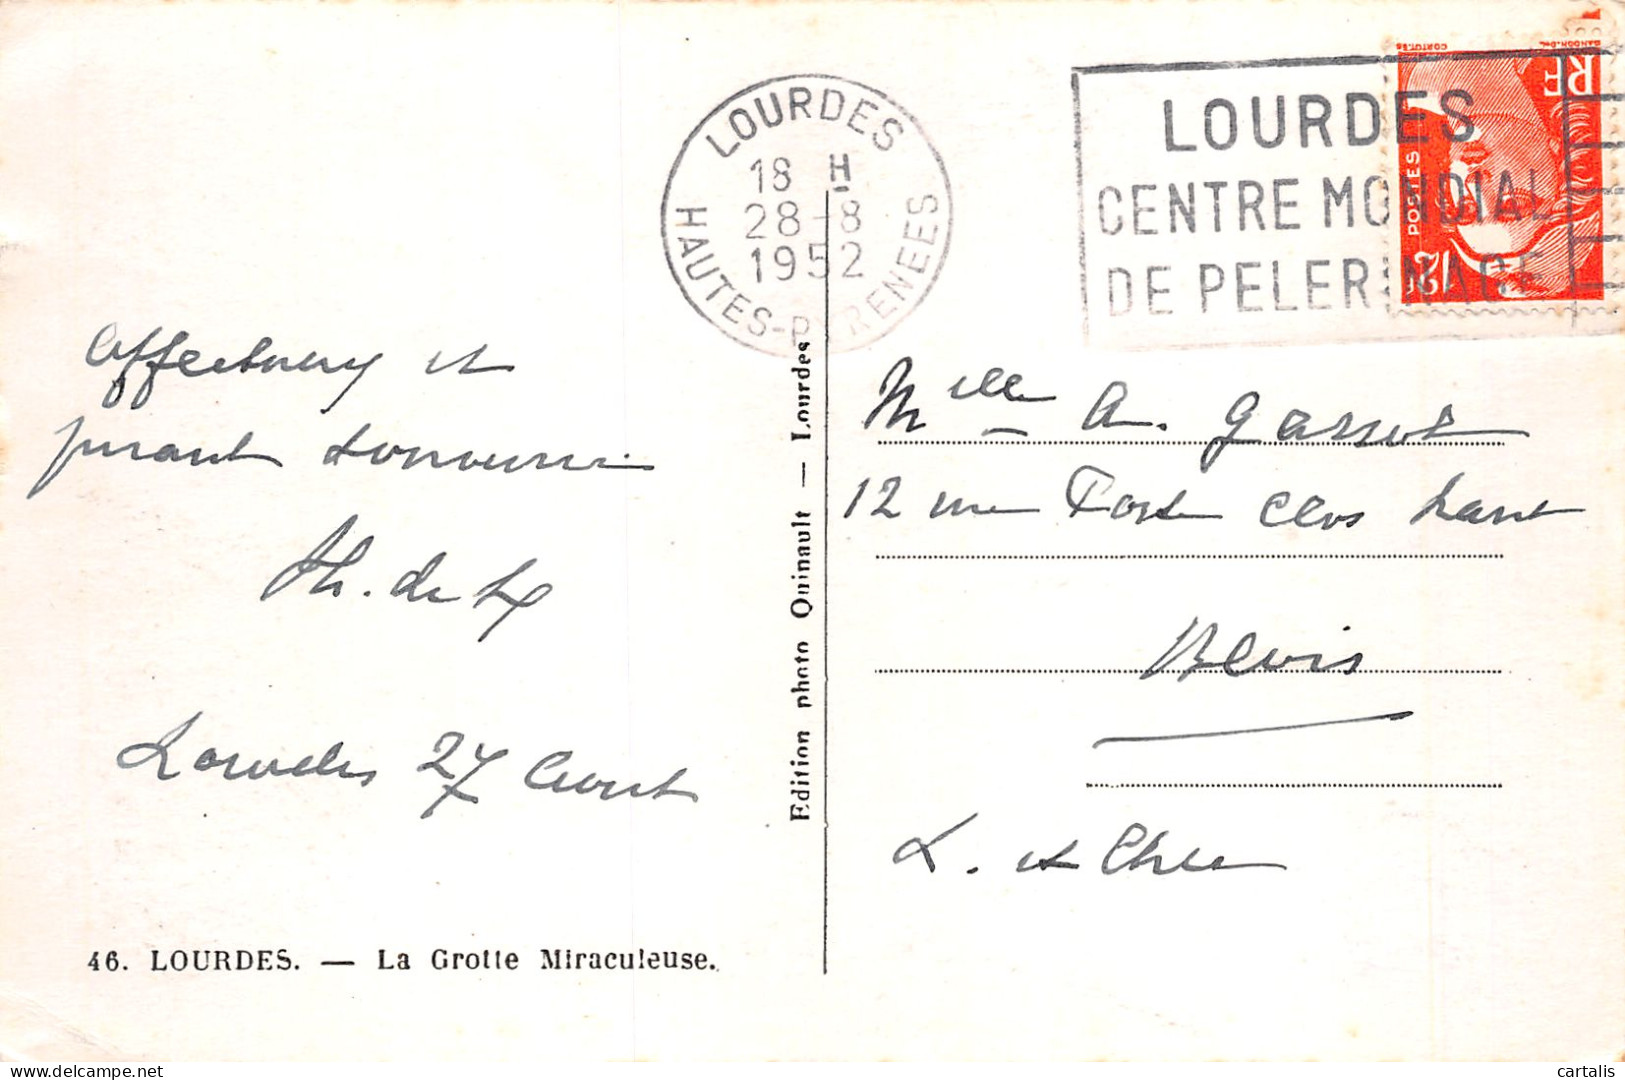 LOURDES
18 H
28-8
1952
HAUTES-PYRENEES
LOURDES
CENTRE MONDIAL
DE PELERINAGE
RF
POSTES
12F
Affectueux et
priant souvenir
Th. de
Lourdes 27 Aout
46. LOURDES. — La Grotte Miraculeuse.
Edition photo Quinault — Lourdes
Mlle A. Gassot
12 rue Porte Clos haut
Blois
L. et Cher
cartalis
delcampe.net